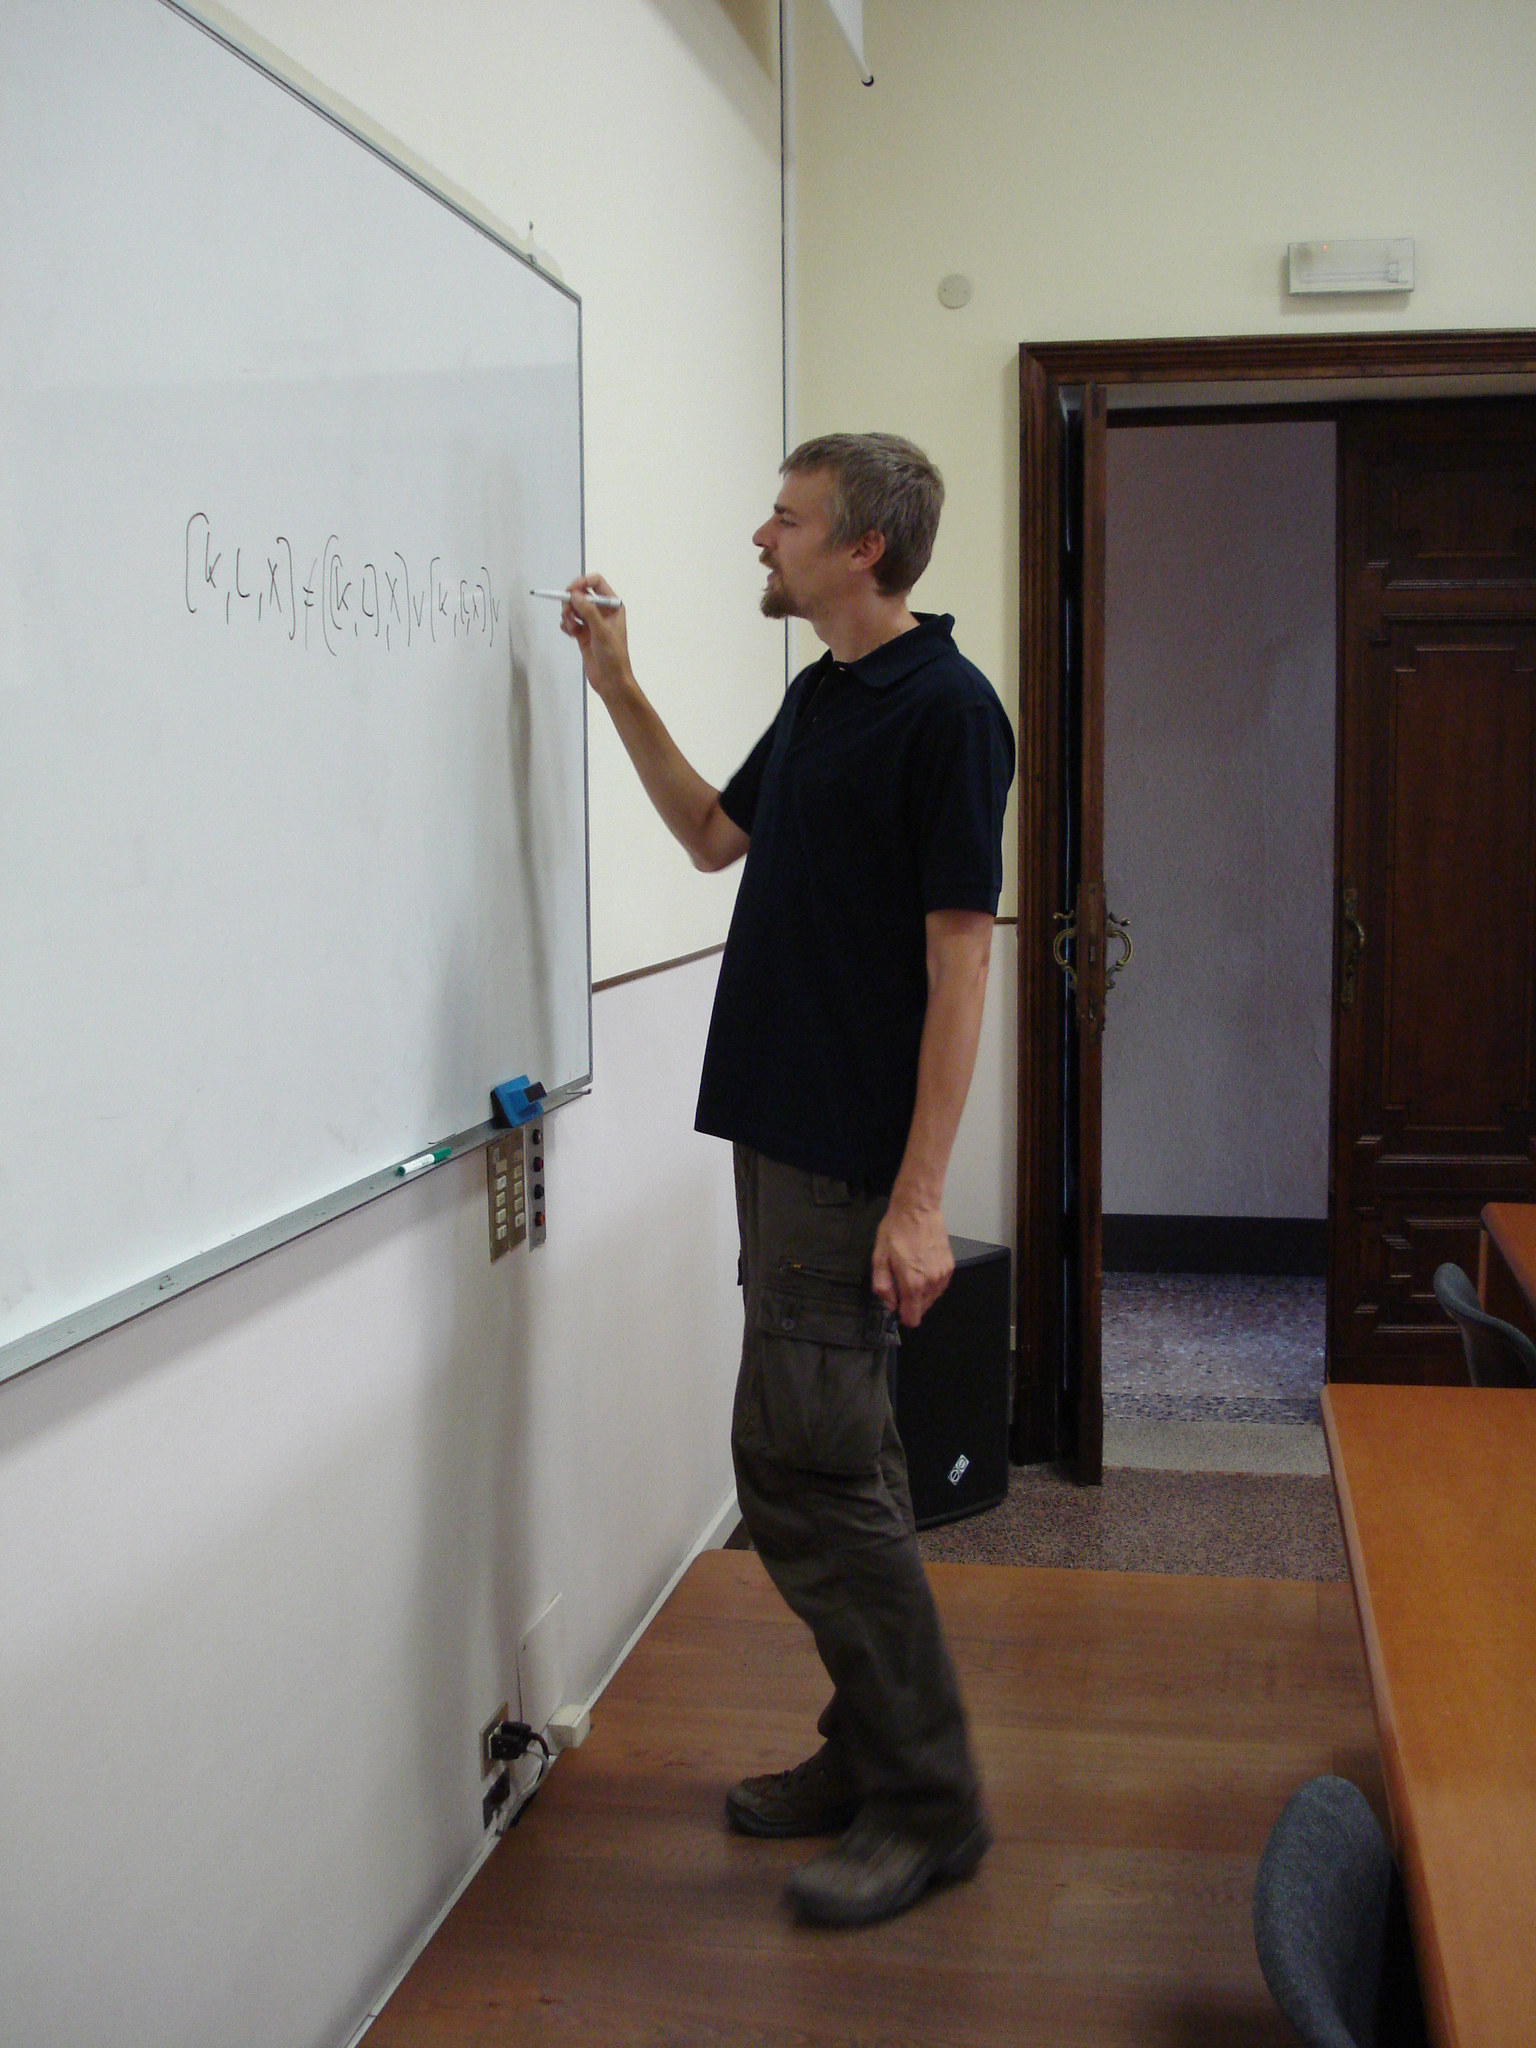 [K, L, X] ≠ [[K, L], X] ∨ [K, [L, X]] ∨